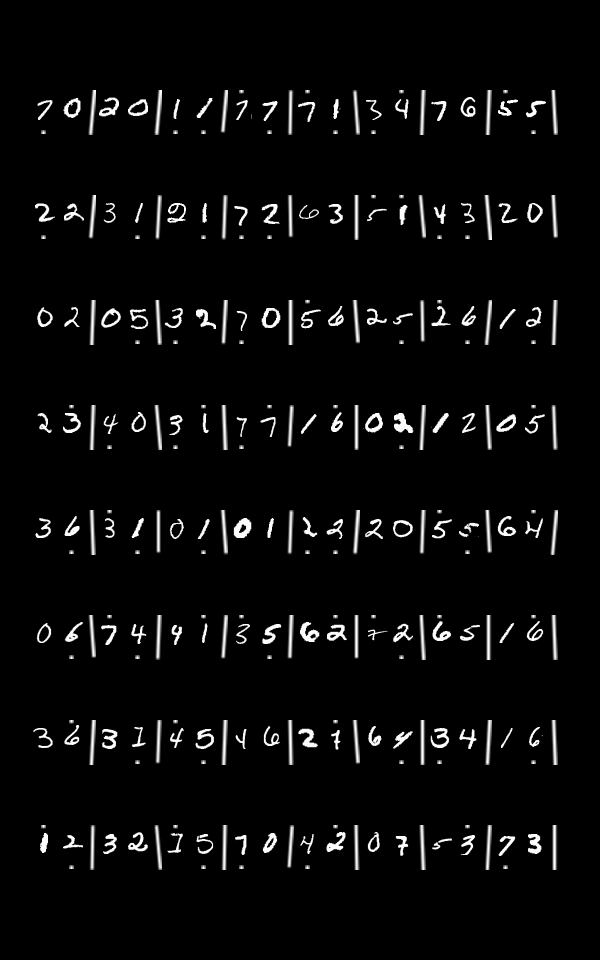 7 0 | 2 0 | 1 1 | 7 7 | 7 1 | 3 4 | 7 6 | 5 5 |
2 2 | 3 1 | 2 1 | 7 2 | 6 3 | 5 1 | 4 3 | 2 0 |
0 2 | 0 5 | 3 2 | 7 0 | 5 6 | 2 5 | 2 6 | 1 2 |
2 3 | 4 0 | 3 1 | 7 7 | 1 6 | 0 2 | 1 2 | 0 5 |
3 6 | 3 1 | 0 1 | 0 1 | 2 2 | 2 0 | 5 5 | 6 4 |
0 6 | 7 4 | 4 1 | 3 5 | 6 2 | 7 2 | 6 5 | 1 6 |
3 6 | 3 1 | 4 5 | 4 6 | 2 7 | 6 4 | 3 4 | 1 6 |
1 2 | 3 2 | 1 5 | 7 0 | 4 2 | 0 7 | 5 3 | 7 3 |